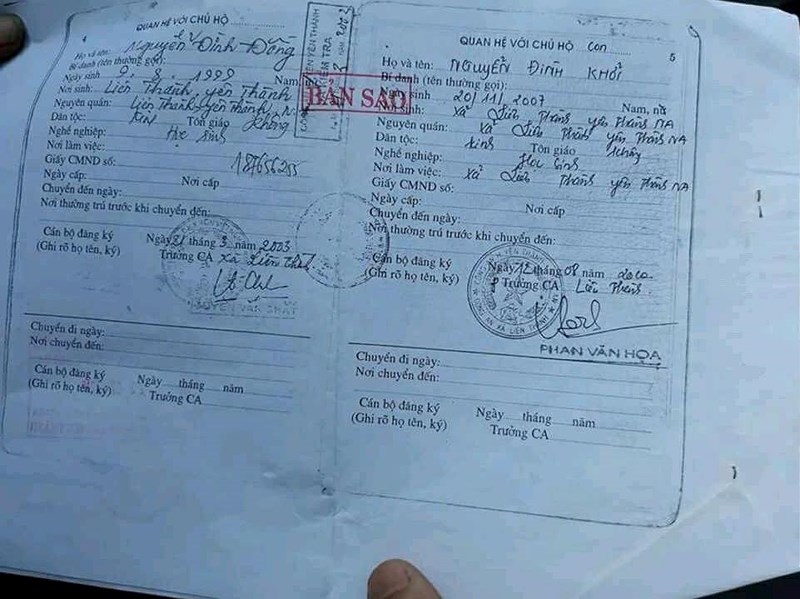 4
QUAN HỆ VỚI CHỦ HỘ
Họ và tên: Nguyễn Đình Đồng
Bí danh (tên thường gọi):
Ngày sinh 9. 8. 1999 Nam, nữ
Nơi sinh: Liên Thành, yên Thành
Nguyên quán: Liên Thành, yên Thành
Dân tộc: Kin Tôn giáo Không
Nghề nghiệp: Học sinh
Nơi làm việc:
Giấy CMND số: 187656255
Ngày cấp: Nơi cấp
Chuyển đến ngày:
Nơi thường trú trước khi chuyển đến:
Cán bộ đăng ký
(Ghi rõ họ tên, ký)
Ngày 21 tháng 3 năm 2003
Trưởng CA xã Liên Thành
Chuyển đi ngày:
Nơi chuyển đến:
Cán bộ đăng ký
(Ghi rõ họ tên, ký)
Ngày tháng năm
Trưởng CA
YÊN THÀNH
BẢN SAO
5
QUAN HỆ VỚI CHỦ HỘ con
Họ và tên: NGUYỄN ĐÌNH KHÔI
Bí danh (tên thường gọi):
Ngày sinh 20/11/2007 Nam, nữ
Nơi sinh: xã Liên Thành yên Thành NA
Nguyên quán: xã Liên Thành yên Thành NA
Dân tộc: kinh Tôn giáo không
Nghề nghiệp: Học sinh
Nơi làm việc: xã Liên Thành yên Thành NA
Giấy CMND số:
Ngày cấp: Nơi cấp
Chuyển đến ngày:
Nơi thường trú trước khi chuyển đến:
Cán bộ đăng ký
(Ghi rõ họ tên, ký)
Ngày 12 tháng 08 năm
Trưởng CA Liên Thành
PHAN VĂN HỌA
Chuyển đi ngày:
Nơi chuyển đến:
Cán bộ đăng ký
(Ghi rõ họ tên, ký)
Ngày tháng năm
Trưởng CA